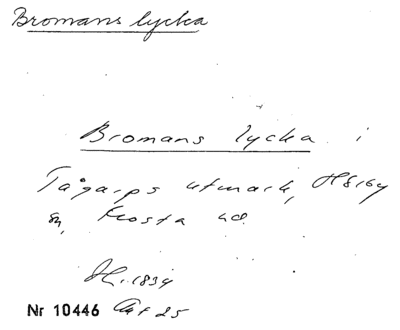 Bromans lycka
Bromans lycka i
Tågarps utmark, Hörby
sn, Frosta hd.
H. 1834
Nr 10446 Akt 25